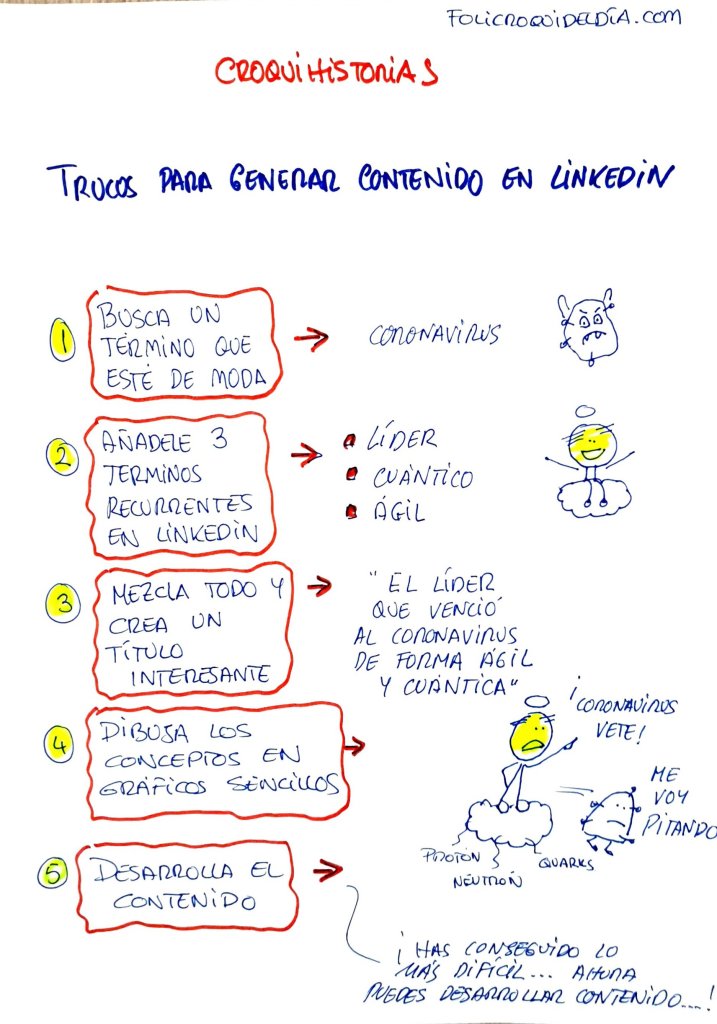 FOLICROQUIDELDÍA.COM
CROQUIHISTORIAS
TRUCOS PARA GENERAR CONTENIDO EN LINKEDIN
1
BUSCA UN
TÉRMINO QUE
ESTÉ DE MODA
CORONAVIRUS
2
AÑADELE 3
TERMINOS
RECURRENTES
EN LINKEDIN
LÍDER
CUÁNTICO
ÁGIL
3
MEZCLA TODO Y
CREA UN
TÍTULO
INTERESANTE
"EL LÍDER
QUE VENCIÓ
AL CORONAVIRUS
DE FORMA ÁGIL
Y CUÁNTICA"
4
DIBUJA LOS
CONCEPTOS EN
GRÁFICOS SENCILLOS
¡CORONAVIRUS
VETE!
ME
VOY
PITANDO
PROTÓN
NEUTRÓN
QUARKS
5
DESARROLLA EL
CONTENIDO
¡HAS CONSEGUIDO LO
MÁS DIFÍCIL... AHORA
PUEDES DESARROLLAR CONTENIDO....!